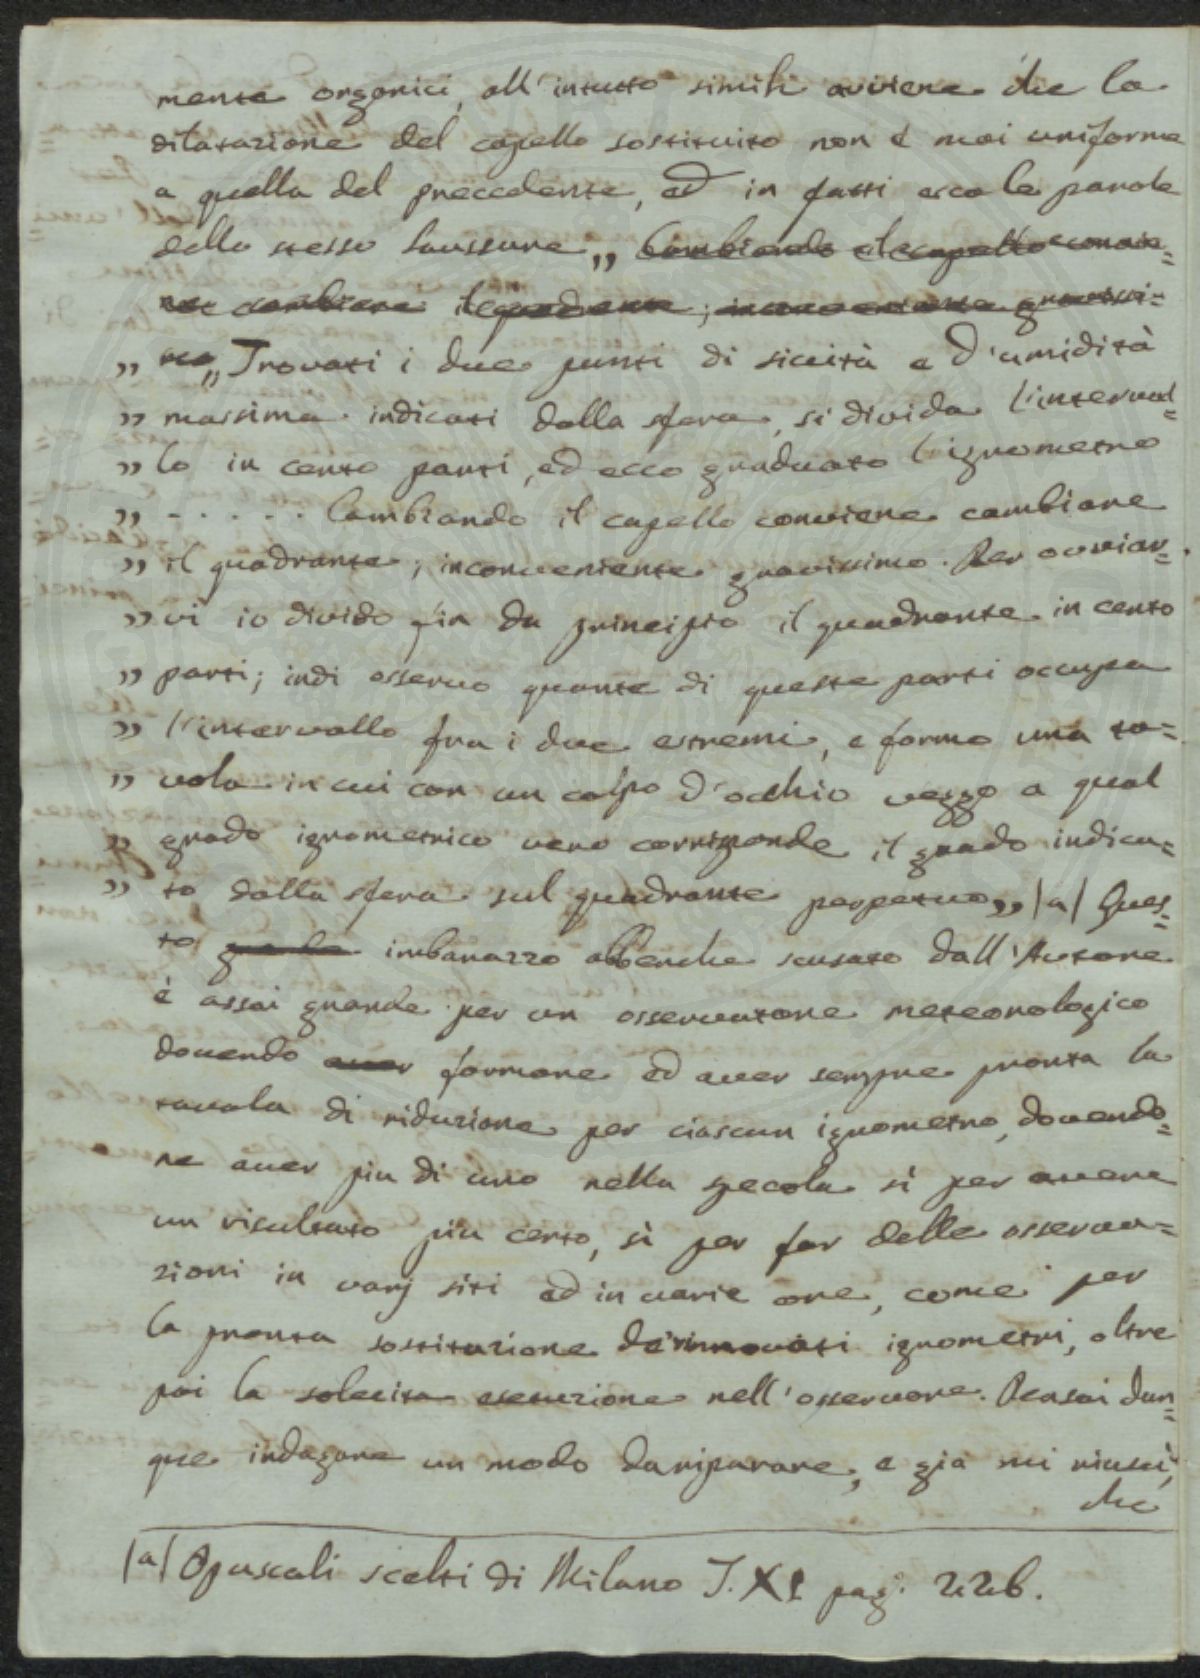 mente organici, all'intutto simili avviene che la
dilatazione del capello sostituito non è mai uniforme
a quella del preccedente, ed in fatti ecco le parole
dello stesso Saussure „ Cambiando il capello convie=
ne cambiare il quadrante; inconveniente gravissi=
„ mo „ Trovati i due punti di siccità e d'umidità
„ massima indicati dalla sfera, si divida l'interval=
„ lo in cento parti, ed ecco graduato l'igrometro
„ - . . . . . Cambiando il capello conviene cambiare
„ il quadrante; inconveniente gravissimo. Per ovviar=
„ vi io divido fin da principio il quadrante in cento
„ parti; indi osservo quante di queste parti occupa
„ l'intervallo fra i due estremi, e formo una ta=
„ vola in cui con un colpo d'occhio veggo a qual
„ grado igrometrico vero corrisponde il grado indica=
„ to dalla sfera sul quadrante perpetuo „ |a| Ques=
to imbarazzo abbenche scusato dall'Autore
è assai grande per un osservatore meteorologico
dovendo aver formare ed aver sempre pronta la
tavola di riduzione per ciascun igrometro, dovendo=
ne aver piu di uno nella specola sì per avere
un risultato più certo, sì per far delle osserva=
zioni in varj siti ed in varie ore, come per
la pronta sostituzione de'rinnovati igrometri, oltre
poi la solecita esecuzione nell'osservare. Pensai dun=
que indagare un modo da riparare, e già mi riuscì,
che
|a| Opuscoli scelti di Milano T. XI pag. 226.